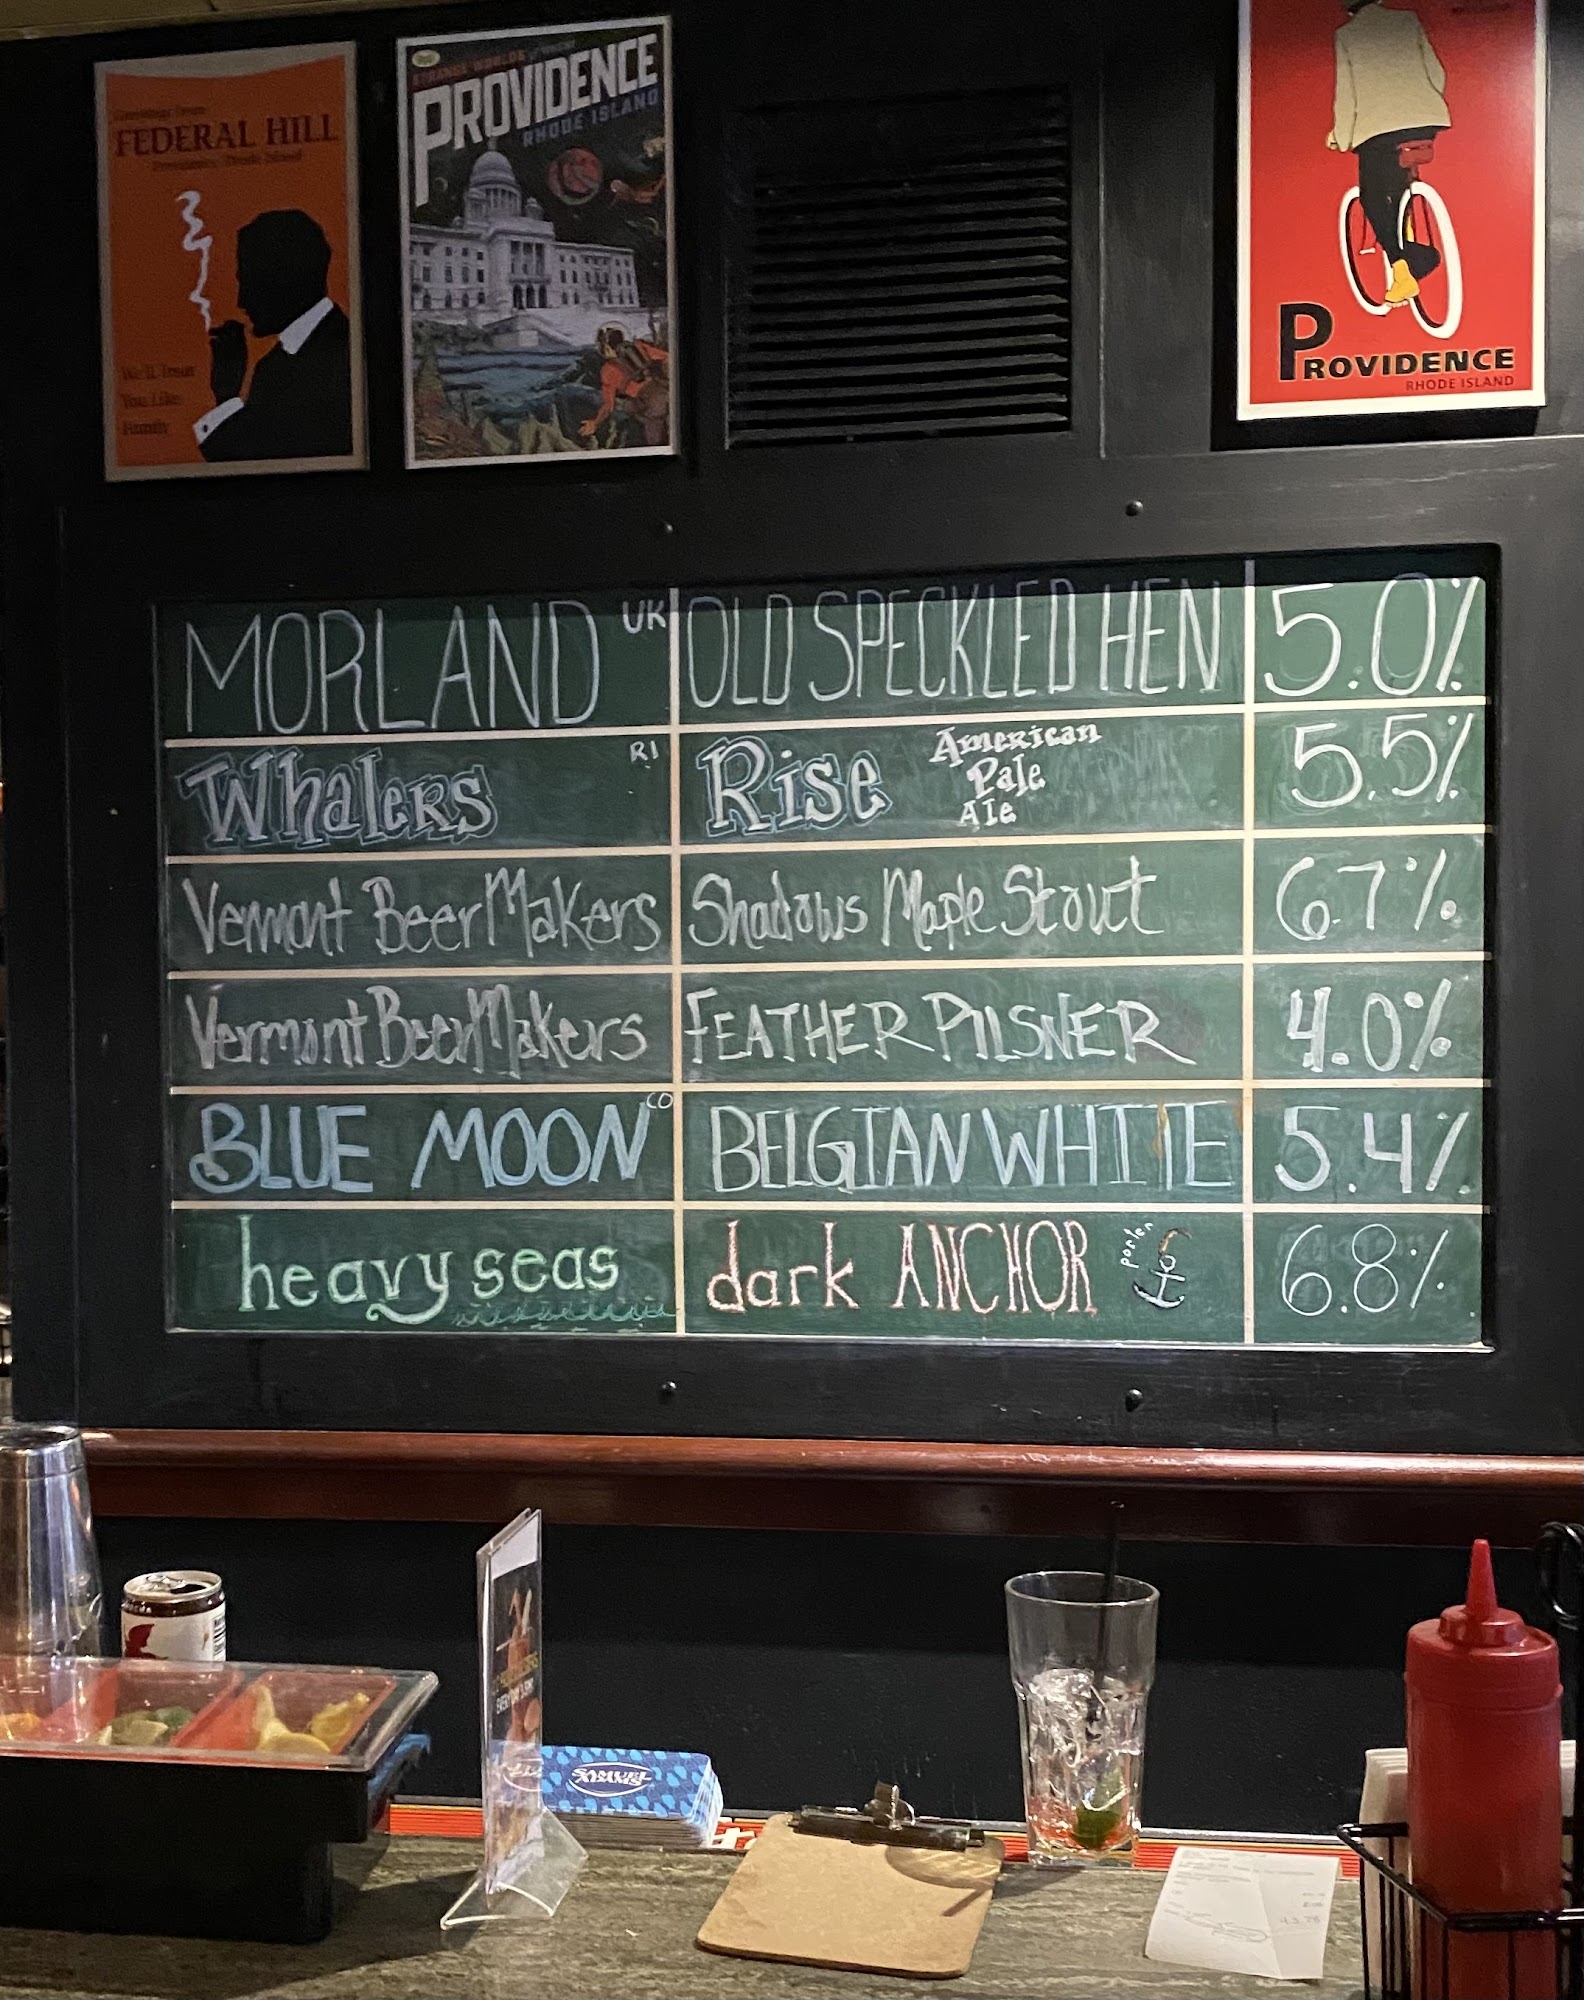 Greetings from
FEDERAL HILL
Providence, Rhode Island
We'll Treat
You Like
Family
STRANGE WORLDS
PROVIDENCE
RHODE ISLAND
PROVIDENCE
RHODE ISLAND
MORLAND UK OLD SPECKLED HEN 5.0%
Whalers RI Rise American Pale Ale 5.5%
Vermont Beer Makers Shadows Maple Stout 6.7%
Vermont Beer Makers FEATHER PILSNER 4.0%
BLUE MOON CO BELGIAN WHITE 5.4%
heavy seas dark ANCHOR porter 6.8%
SAMUEL
ADAMS